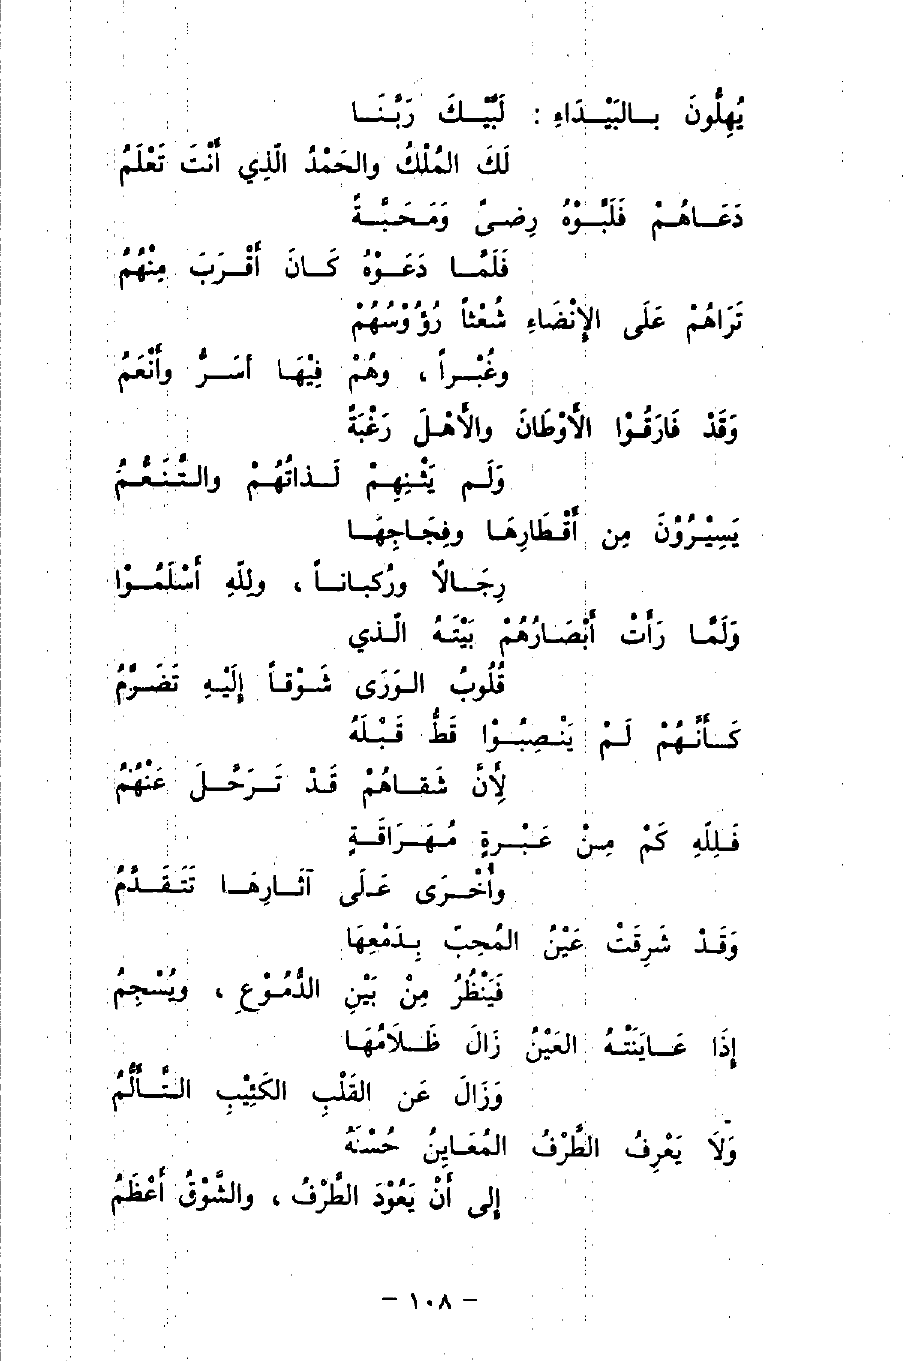 يُهِلُّونَ بِالبَيْدَاءِ : لَبَّيْكَ رَبَّنَا
لَكَ المُلْكُ والحَمْدُ الَّذِي أَنْتَ تَعْلَمُ
دَعَاهُمْ فَلَبَّوْهُ رِضىً وَمَحَبَّةً
فَلَمَّا دَعَوْهُ كَانَ أَقْرَبَ مِنْهُمُ
تَرَاهُمْ عَلَى الإِنْضَاءِ شُعْثاً رُؤُوْسُهُمْ
وغُبْراً ، وهُمْ فِيْهَا أسَرُّ وأَنْعَمُ
وَقَدْ فَارَقُوْا الأَوْطَانَ والأَهْلَ رَغْبَةً
وَلَم يَثْنِهِمْ لَذاتُهُمْ والتَّنَعُّمُ
يَسِيْرُوْنَ مِن أَقْطَارِهَا وفِجَاجِهَا
رِجَالاً ورُكبَاناً ، وللَّهِ أَسْلَمُوْا
وَلَمَّا رَأَتْ أَبْصَارُهُمْ بَيْتَهُ الَّذي
قُلُوبُ الوَرَى شَوْقاً إِلَيْهِ تَضَرَّمُ
كَأَنَّهُمْ لَمْ يَنْصِبُوْا قَطُّ قَبْلَهُ
لأَنَّ شَقاهُمْ قَدْ تَرَحَّلَ عَنْهُمُ
فَلِلَّهِ كَمْ مِنْ عَبْرةٍ مُهَرَاقَةٍ
وأُخْرَى عَلَى آثَارِهَا تَتَقَدَّمُ
وَقَدْ شَرِقَتْ عَيْنُ المُحِبِّ بِدَمْعِهَا
فَيَنْظُرُ مِنْ بَيْنِ الدُّمُوْعِ ، ويُسْجِمُ
إِذَا عَايَنَتْهُ العَيْنُ زَالَ ظَلَامُهَا
وَزَالَ عَن القَلْبِ الكَئِيْبِ التَّأَلُّمُ
وَلاَ يَعْرِفُ الطَّرْفُ المُعَايِنُ حُسْنَهُ
إلى أَنْ يَعُوْدَ الطَّرْفُ ، والشَّوْقُ أَعْظَمُ
- ١٠٨ -